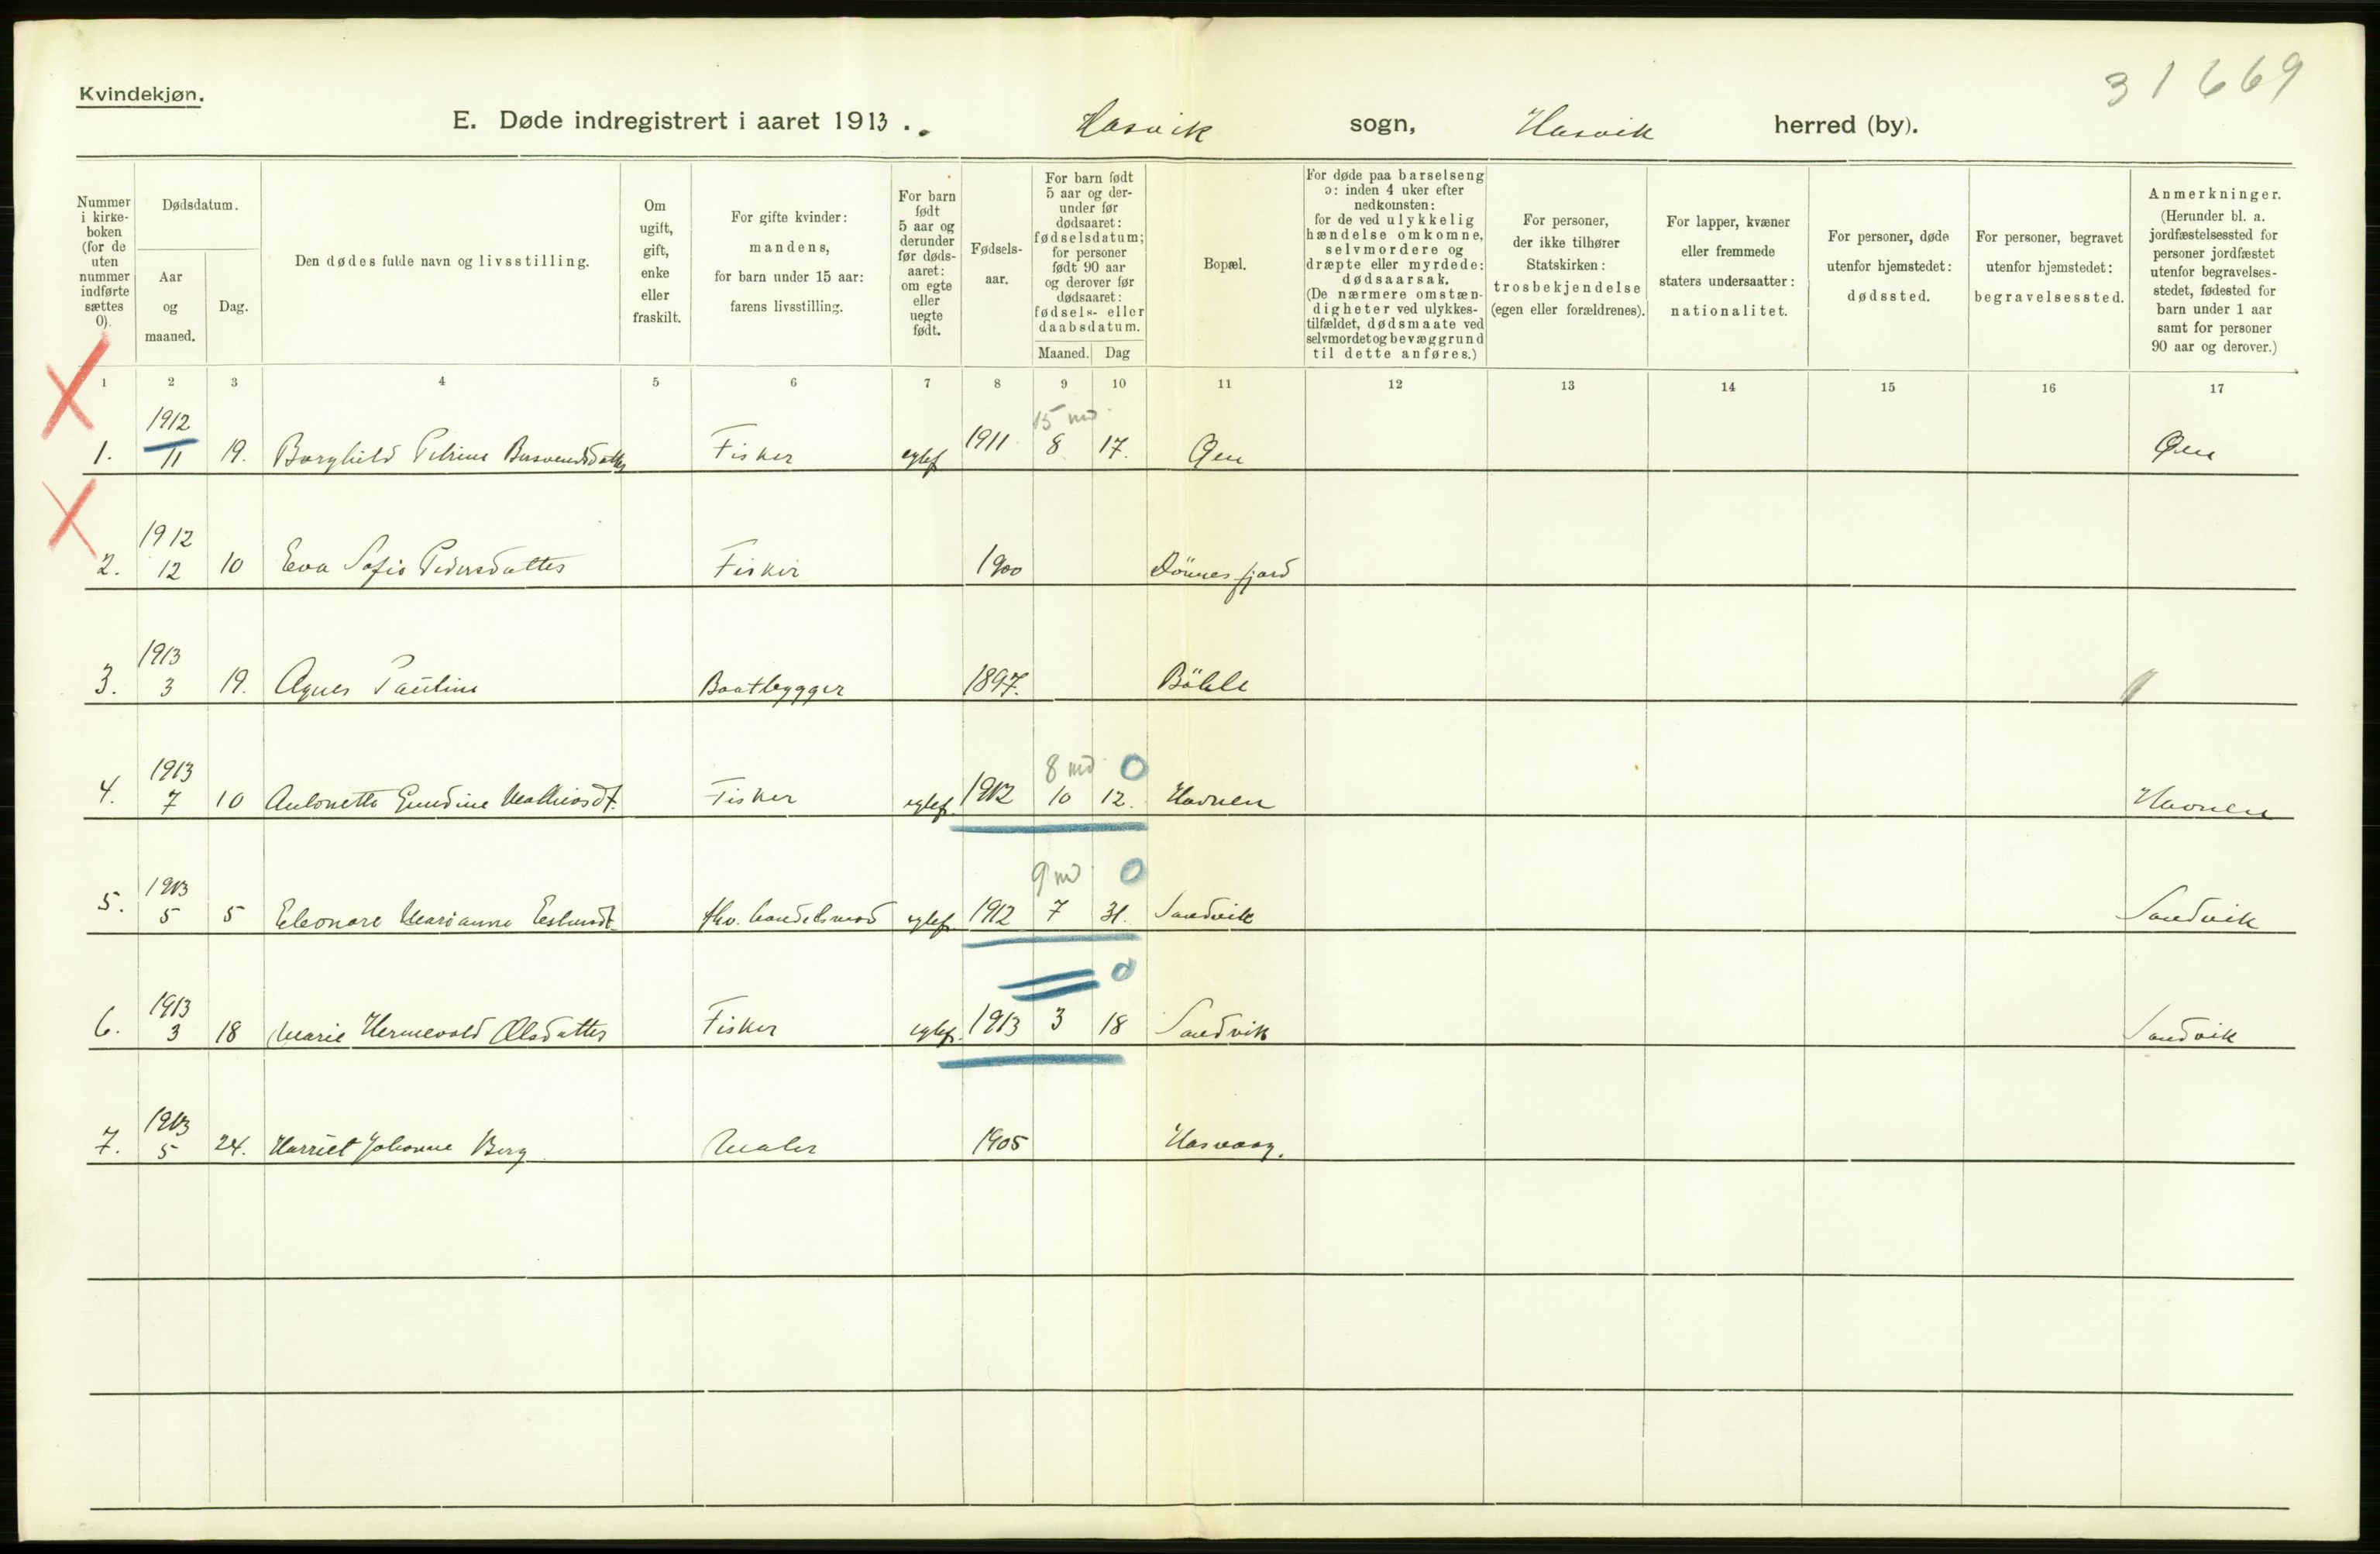 31669
Kvindekjøn.
E. Døde indregistrert i aaret 1913. Hasvik sogn, Hasvik herred (by).
Nummer i kirkeboken (for de uten nummer indførte sættes 0).
Dødsdatum.
Aar og maaned.
Dag.
Den dødes fulde navn og livsstilling.
Om ugift, gift, enke eller fraskilt.
For gifte kvinder: mandens, for barn under 15 aar: farens livsstilling.
For barn født 5 aar og derunder før dødsaaret: om egte eller uegte født.
Fødselsaar.
For barn født 5 aar og derunder før dødsaaret: fødselsdatum; for personer født 90 aar og derover før dødsaaret: fødsels- eller daabsdatum.
Maaned. Dag
Bopæl.
For døde paa barselseng ɔ: inden 4 uker efter nedkomsten: for de ved ulykkelig hændelse omkomne, selvmordere og dræpte eller myrdede: dødsaarsak. (De nærmere omstændigheter ved ulykkestilfældet, dødsmaate ved selvmordet og bevæggrund til dette anføres.)
For personer, der ikke tilhører Statskirken: trosbekjendelse (egen eller forældrenes).
For lapper, kvæner eller fremmede staters undersaatter: nationalitet.
For personer, døde utenfor hjemstedet: dødssted.
For personer, begravet utenfor hjemstedet: begravelsessted.
Anmerkninger. (Herunder bl. a. jordfæstelsessted for personer jordfæstet utenfor begravelsesstedet, fødested for barn under 1 aar samt for personer 90 aar og derover.)
1 2 3 4 5 6 7 8 9 10 11 12 13 14 15 16 17
1912 15 md
1. 11 19. Borghild Petrine Fisker egtef 1911 8 17. Øen Øen
1912
2. 12 10 Eva Sofie Pedersdatter Fisker 1900 Dönnesfjord
1913
3. 3 19. Agnes Pauline Baatbygger 1897. Böhle
1913 8 md 0
4. 7 10 Antonette Gundine Mathiasdt. Fisker egtef. 1912 10 12. Havnen Havnen
1913 9 md 0
5. 5 5 Eleonore Marianne fhv. handelsmand egtef. 1912 7 31. Sandvik Sandvik
1913 0
6. 3 18 Marie Hermevold Olsdatter Fisker egtef. 1913 3 18 Sandvik Sandvik
1913
7. 5 24. Harriet Johanne Berg Maler 1905 Hasvaag.